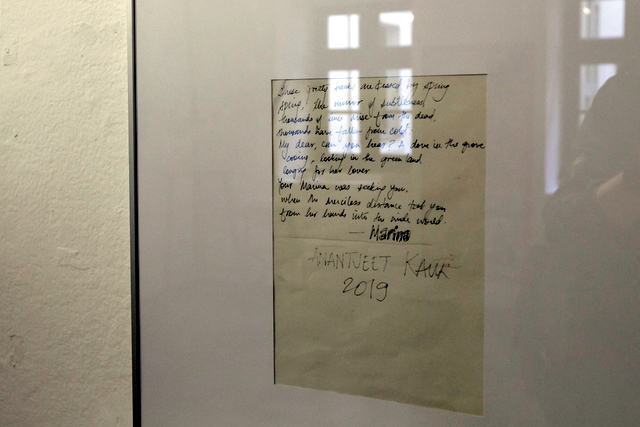 These pretty are kissed by spring
spring, the mirror of
thousands of arise from the dead,
thousands have fallen from cold.
My dear, can you hear? A dove in the grove
cooing, looking in the green land
longing for her lover
Your Marina was seeking you,
when the merciless distance took you
from her hands into the wide world.
— Marina
AMANTJEET KAUR
2019